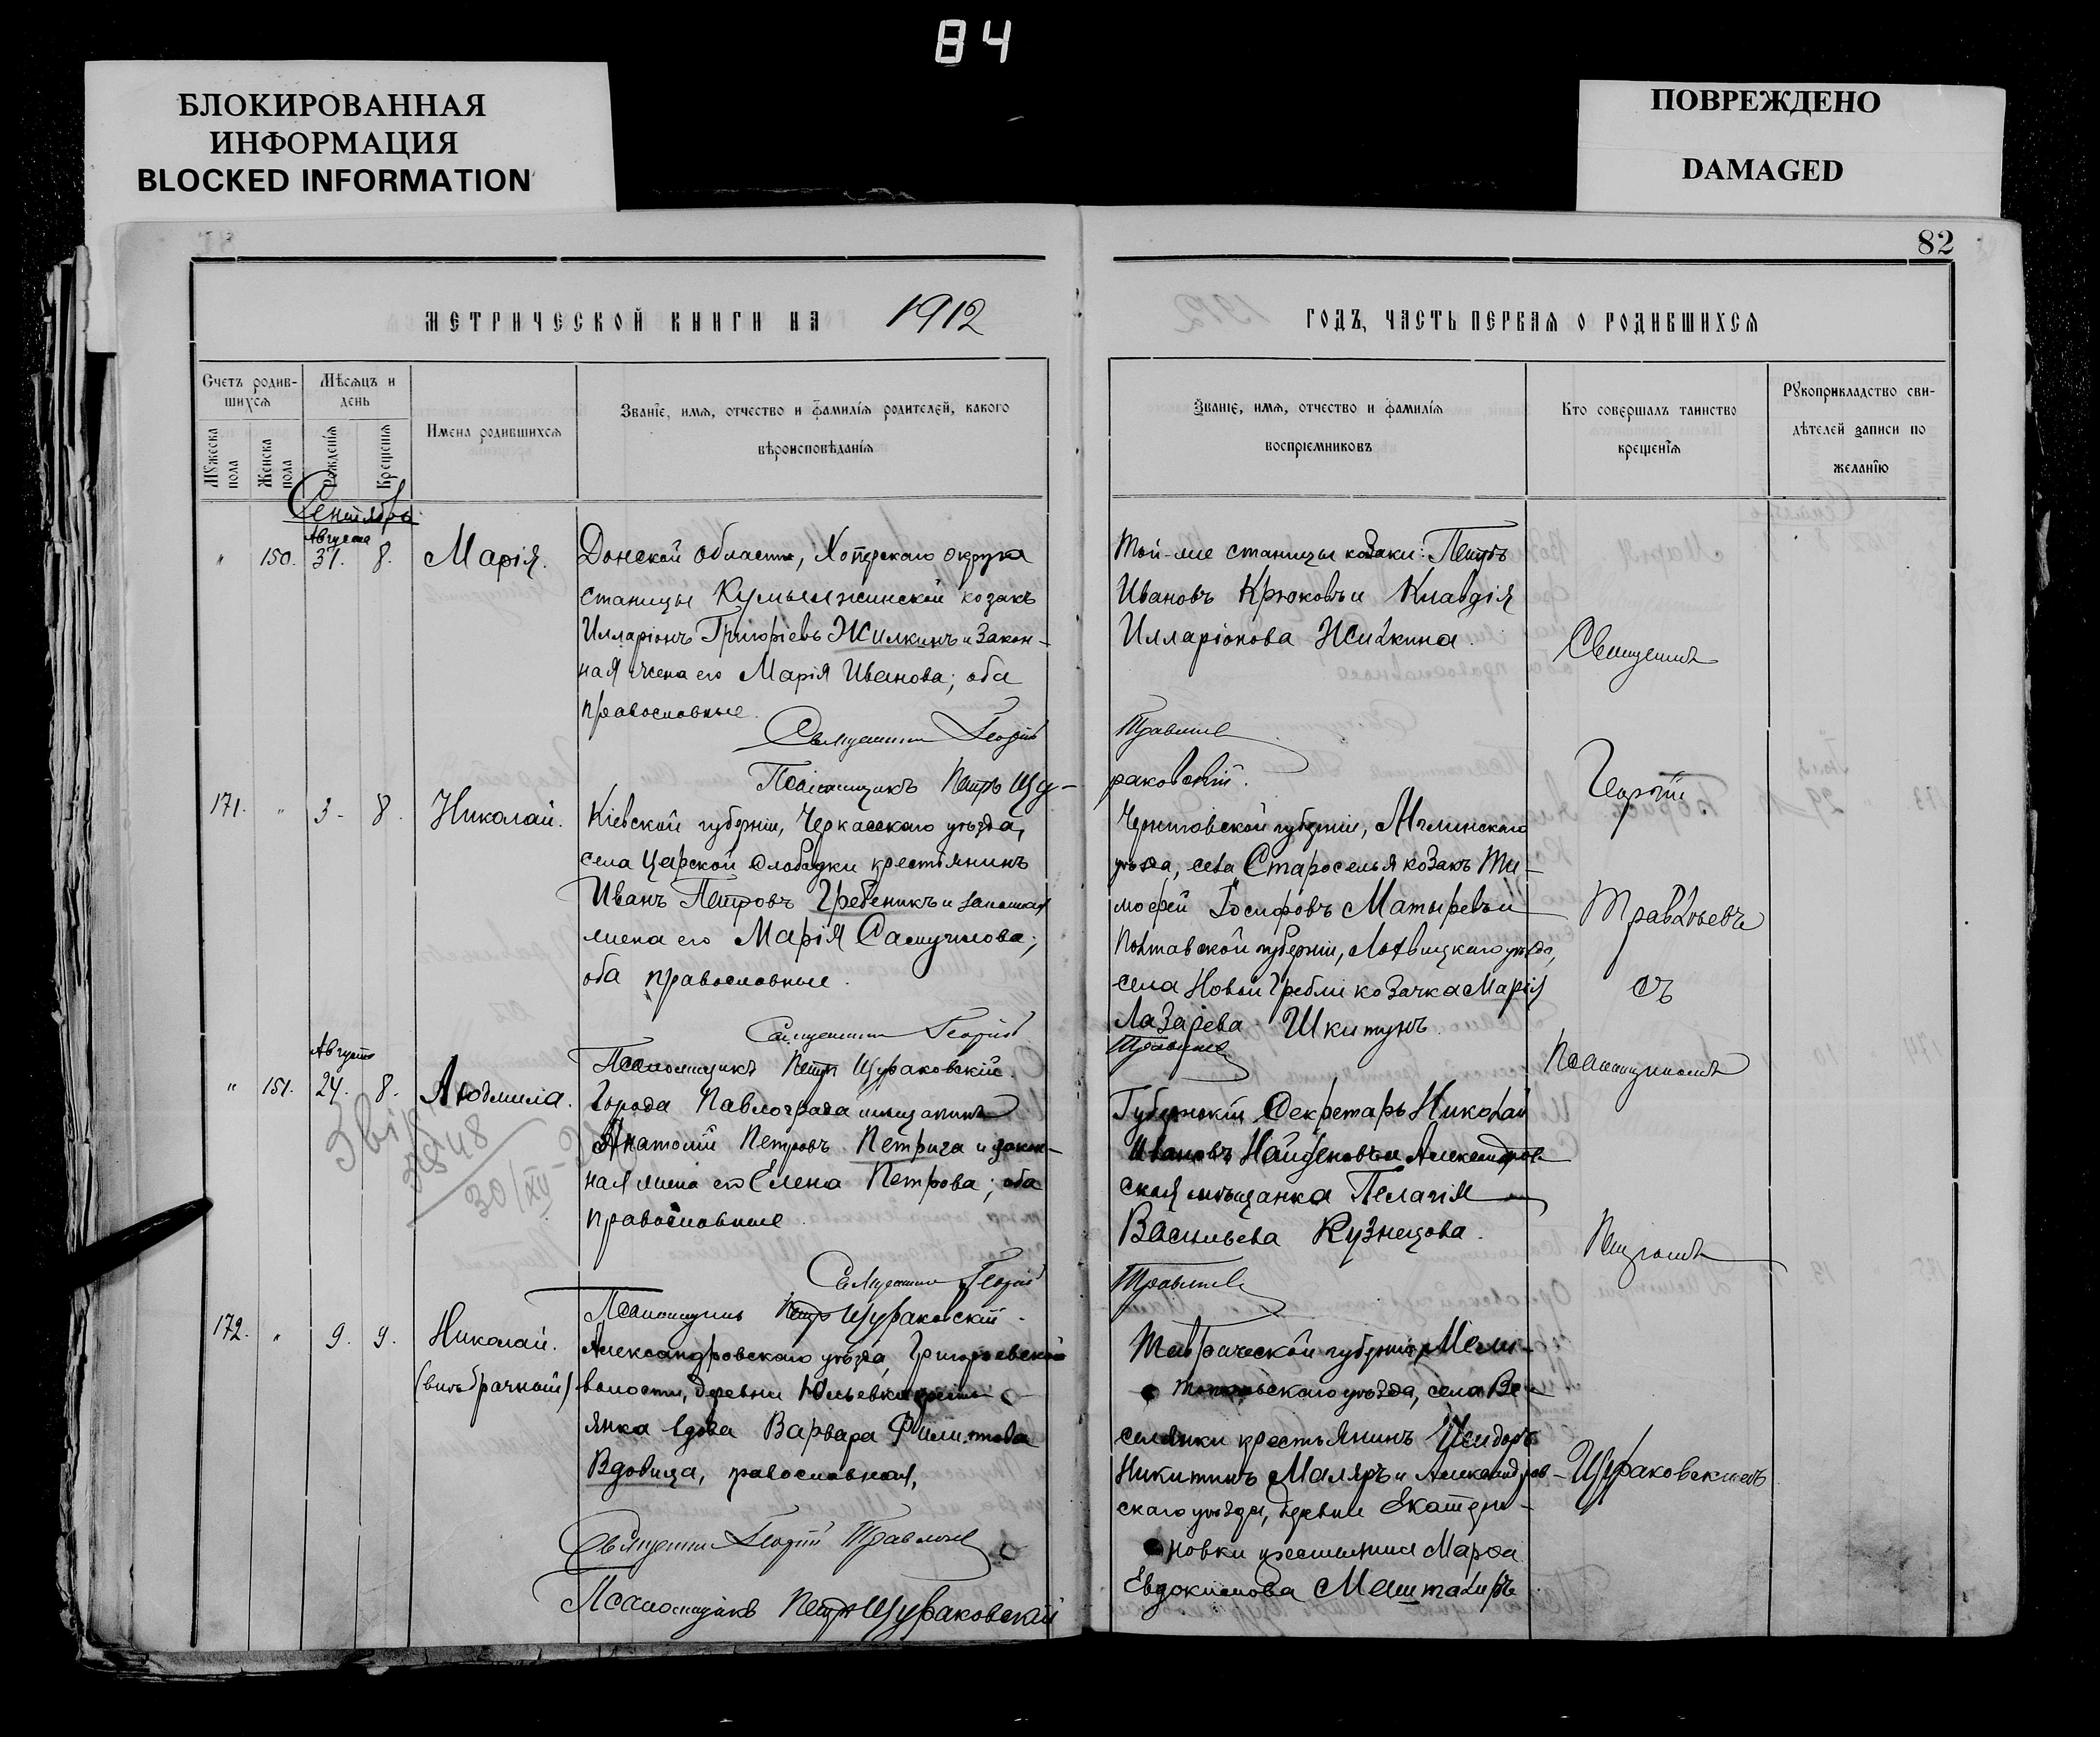 84
БЛОКИРОВАННАЯ
ИНФОРМАЦИЯ
BLOCKED INFORMATION
ПОВРЕЖДЕНО
DAMAGED
82
МЕТРИЧЕСКОЙ КНИГИ НА 1912
ГОДЪ, ЧАСТЬ ПЕРВАЯ О РОДИВШИХСЯ
Счетъ родив-
шихся
Мѣсяцъ и
день
Мужеска пола
Женска пола
Рожденія
Крещенія
Имена родившихся
Званіе, имя, отчество и фамилія родителей, какого
вѣроисповѣданія
Званіе, имя, отчество и фамилія
воспріемниковъ
Кто совершалъ таинство
крещенія
Рукоприкладство сви-
дѣтелей записи по
желанію
Сентябрь
Августа
" 150. 31. 8. Марія.
Донской области, Хоперскаго округа
станицы Кумылженской козакъ
Илларіонъ Григорьевъ Жилкинъ и закон-
ная жена его Марія Иванова; оба
православные.
Священникъ Георгій
Псаломщикъ Петръ Щу-
Той-же станицы козаки: Петръ
Ивановъ Крюковъ и Клавдія
Илларіонова Жилкина.
Травлѣев
раковскій.
171. " 3 - 8. Николай.
Кіевской губерніи, Черкасскаго уѣзда,
села Царской Слободки крестьянинъ
Иванъ Петровъ Гребеникъ и законная
жена его Марія Самуилова;
оба православные.
Священникъ Георгій
Псаломщикъ Петръ Щураковскій.
Черниговской губерніи, Мглинскаго
уѣзда, села Староселья козакъ Ти-
мофей Іосифовъ Матыревъ и
Полтавской губерніи, Лохвицкаго уѣзда,
села Новой Гребли козачка Марія
Лазарева Шкитунъ.
Травлѣев
Августа
" 151. 24. 8. Людмила.
Города Павлограда мѣщанинъ
Анатолій Петровъ Петрига и закон-
ная жена его Елена Петрова; оба
православные.
Священникъ Георгій
Псаломщикъ Петръ Щураковскій.
Губернскій Секретарь Николай
Ивановъ Найденовъ и Александров-
ская мѣщанка Пелагія
Васильева Кузнецова.
Травлѣев
30/XII
172. " 9. 9. Николай.
(внѣбрачный)
Александровскаго уѣзда, Григорьевской
волости, деревни Юльевки кресть-
янка вдова Варвара Филиппова
Вдовица, православная,
Священникъ Георгій Травлѣев
Псаломщикъ Петръ Щураковскій
Таврической губерніи, Мели-
топольскаго уѣзда, села Ве-
селянки крестьянинъ Исидоръ
Никитинъ Маляръ и Александров-
скаго уѣзда, деревни Екатери-
новки крестьянка Марфа
Евдокимова Машталиръ.
Священникъ
Георгій
Травлѣевъ
съ
Псаломщикомъ
Петромъ
Щураковскимъ